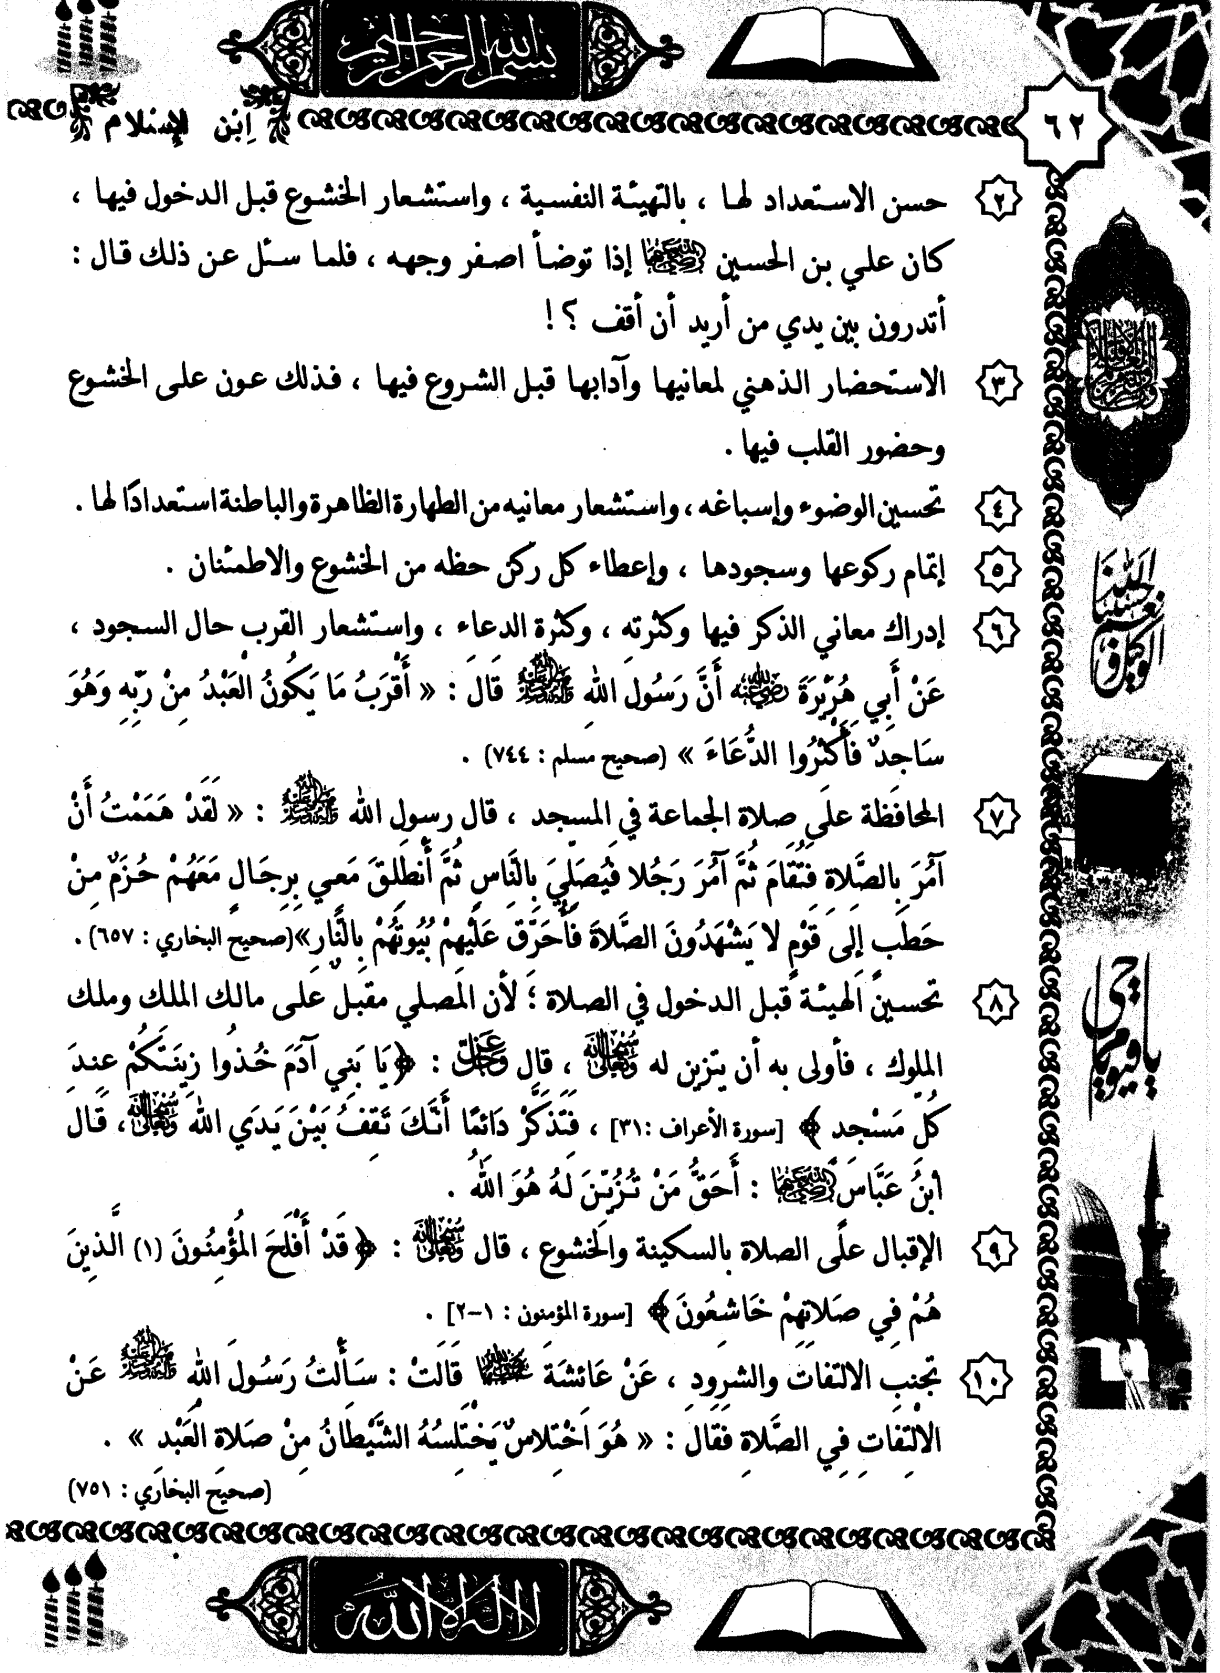 بسم الله الرحمن الرحيم
ابن الإسلام
٦٢
٢ حسن الاستعداد لها ، بالتهيئة النفسية ، واستشعار الخشوع قبل الدخول فيها ،
كان علي بن الحسين رضي الله عنهما إذا توضأ اصفر وجهه ، فلما سئل عن ذلك قال :
أتدرون بين يدي من أريد أن أقف ؟ !
٣ الاستحضار الذهني لمعانيها وآدابها قبل الشروع فيها ، فذلك عون على الخشوع
وحضور القلب فيها .
٤ تحسين الوضوء وإسباغه ، واستشعار معانيه من الطهارة الظاهرة والباطنة استعدادًا لها .
٥ إتمام ركوعها وسجودها ، وإعطاء كل ركن حظه من الخشوع والاطمئنان .
٦ إدراك معاني الذكر فيها وكثرته ، وكثرة الدعاء ، واستشعار القرب حال السجود ،
عَنْ أَبِي هُرَيْرَةَ رضي الله عنه أَنَّ رَسُولَ اللهِ ﷺ قَالَ : « أَقْرَبُ مَا يَكُونُ الْعَبْدُ مِنْ رَبِّهِ وَهُوَ
سَاجِدٌ فَأَكْثِرُوا الدُّعَاءَ » (صحيح مسلم : ٧٤٤) .
٧ المحافظة على صلاة الجماعة في المسجد ، قال رسول الله ﷺ : « لَقَدْ هَمَمْتُ أَنْ
آمُرَ بِالصَّلاةِ فَتُقَامَ ثُمَّ آمُرَ رَجُلا فَيُصَلِّيَ بِالنَّاسِ ثُمَّ أَنطَلِقَ مَعِي بِرِجَالٍ مَعَهُمْ حُزَمٌ مِنْ
حَطَبٍ إِلَى قَوْمٍ لا يَشْهَدُونَ الصَّلاةَ فَأُحَرِّقَ عَلَيْهِمْ بُيُوتَهُمْ بِالنَّارِ»(صحيح البخاري : ٦٥٧) .
٨ تحسين الهيئة قبل الدخول في الصلاة ؛ لأن المصلي مقبل على مالك الملك وملك
الملوك ، فأولى به أن يتزين له سبحانه وتعالى ، قال عز وجل : ﴿يَا بَنِي آدَمَ خُذُوا زِينَتَكُمْ عِندَ
كُلِّ مَسْجِدٍ ﴾ [سورة الأعراف :٣١] ، فَتَذَكَّرْ دَائِمًا أَنَّكَ تَقِفُ بَيْنَ يَدَيِ اللهِ سبحانه وتعالى ، قَالَ
ابْنُ عَبَّاسٍ رضي الله عنهما : أَحَقُّ مَنْ تُزُيِّنَ لَهُ هُوَ اللهُ .
٩ الإقبال على الصلاة بالسكينة والخشوع ، قال سبحانه وتعالى : ﴿ قَدْ أَفْلَحَ الْمُؤْمِنُونَ (١) الَّذِينَ
هُمْ فِي صَلاتِهِمْ خَاشِعُونَ﴾ [سورة المؤمنون : ١-٢] .
١٠ تجنب الالتفات والشرود ، عَنْ عَائِشَةَ رضي الله عنها قَالَتْ : سَأَلْتُ رَسُولَ اللهِ ﷺ عَنْ
الالْتِفَاتِ فِي الصَّلاةِ فقال : « هُوَ اخْتِلاسٌ يَخْتَلِسُهُ الشَّيْطَانُ مِنْ صَلاةِ الْعَبْدِ » .
(صحيح البخاري : ٧٥١)
حسبنا الله ونعم الوكيل
يا حي يا قيوم
لا إله إلا الله